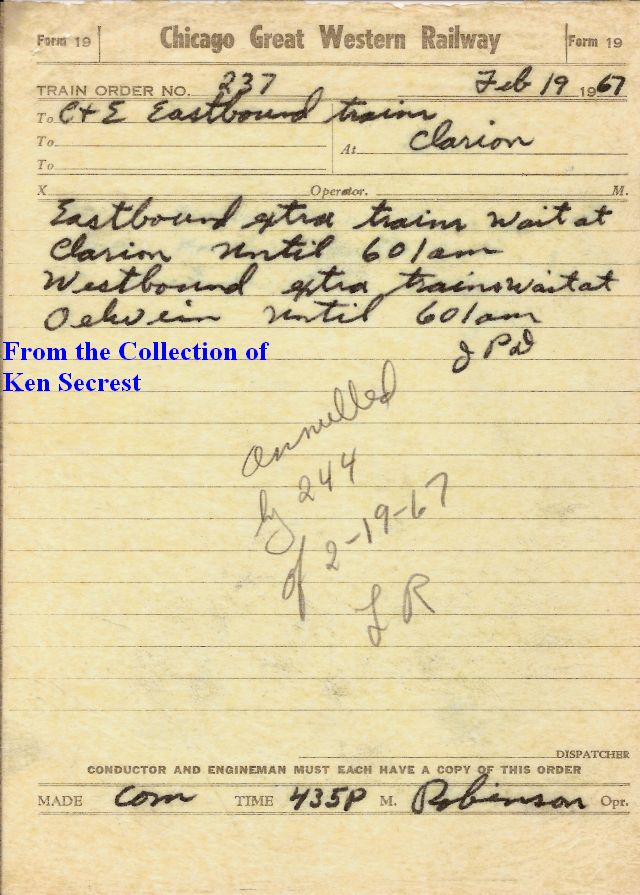 Form 19 Chicago Great Western Railway Form 19
TRAIN ORDER NO. 237 Feb 19 1967
To C+E Eastbound trains
To At Clarion
To
X Operator. M.
Eastbound extra trains wait at
Clarion until 601am
Westbound extra trains wait at
Oelwein until 601am
JPD
From the Collection of
Ken Secrest
annulled
by 244
of 2-19-67
LR
DISPATCHER
CONDUCTOR AND ENGINEMAN MUST EACH HAVE A COPY OF THIS ORDER
MADE Com TIME 435P M. Robinson Opr.